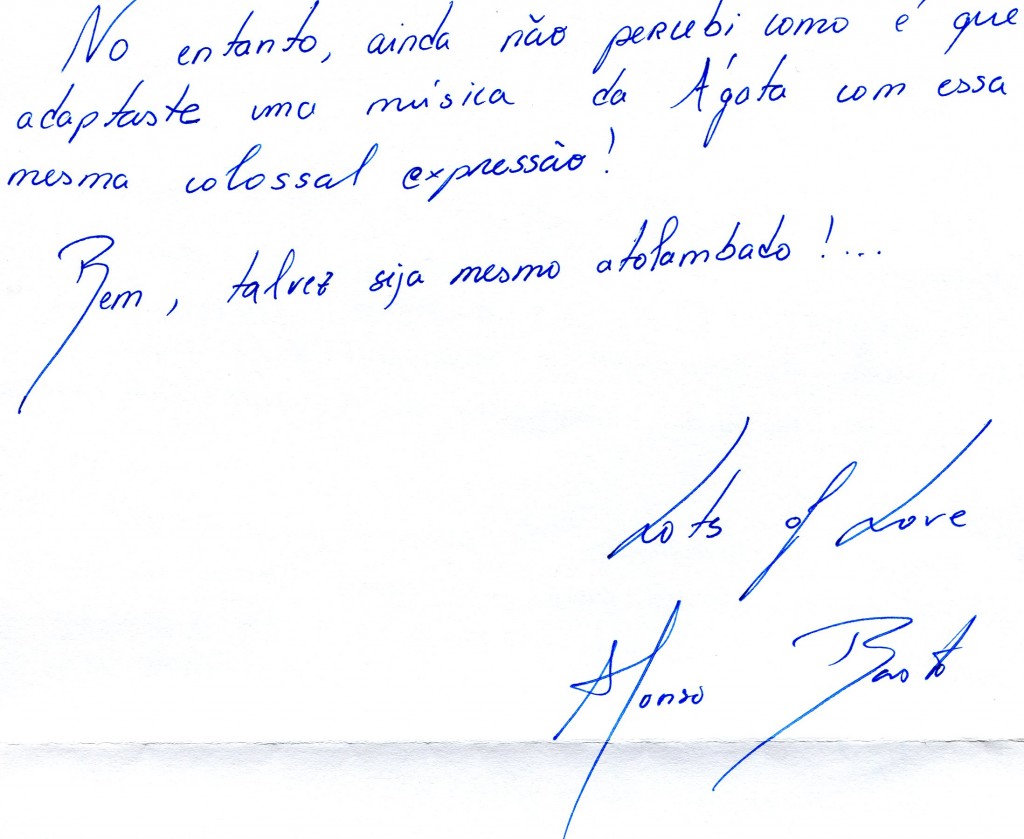 No entanto, ainda não percebi como é que
adaptaste uma música da Ágata com essa
mesma colossal expressão!
Bem, talvez seja mesmo atolambado!...
Lots of Love
Afonso